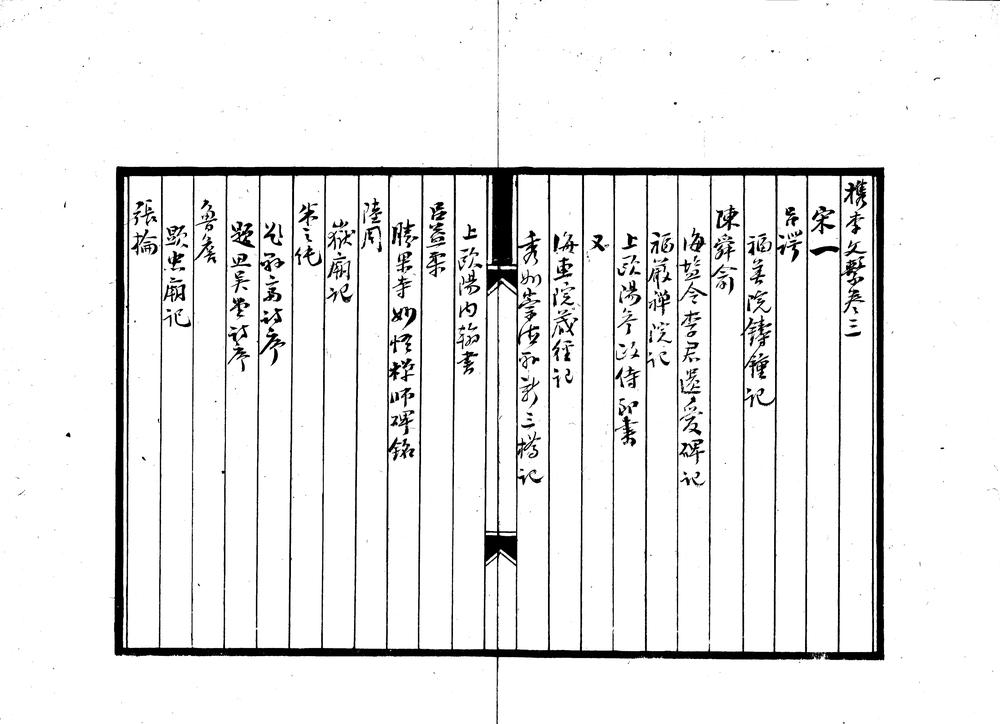 檇李文繫卷三
宋一
呂諤
福善院鑄鐘記
陳舜俞
海塩令李君遺愛碑記
福嚴禪院記
上歐陽參政侍郎書
又
海惠院藏經記
秀州崇德縣新三橋記
上歐陽內翰書
呂益柔
勝果寺妙悟禪師碑銘
陸周
嶽廟記
朱之純
題思吳堂詩序
魯詹
顯忠廟記
張掄